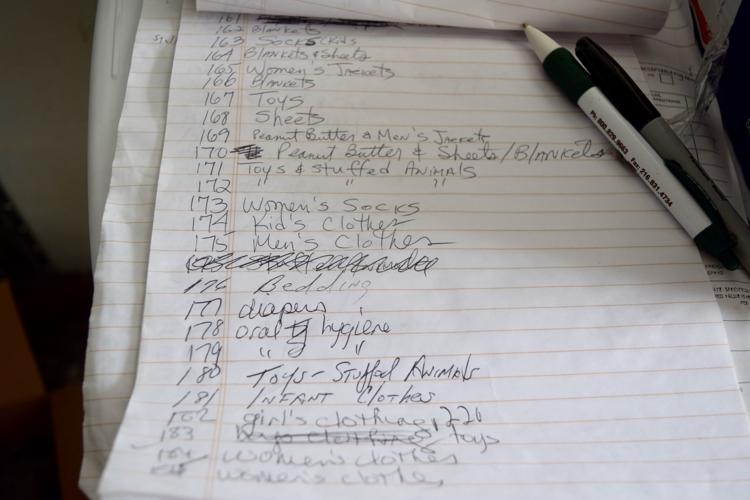 161
162 Blankets
163 Socks Kids
164 Blankets & Sheets
165 Women's Jackets
166 Blankets
167 Toys
168 Sheets
169 Peanut Butter & Men's Jackets
170 Peanut Butter & Sheets/Blankets
171 Toys & stuffed Animals
172 " " "
173 Women's Socks
174 Kid's Clothes
175 Men's Clothes
176 Bedding
177 diapers
178 oral hygiene
179 " "
180 Toys - Stuffed Animals
181 Infant Clothes
182 girl's clothing, 220
183 boys clothing, toys
184 women's clothes
185 women's clothes
Fax: 216.831.4734